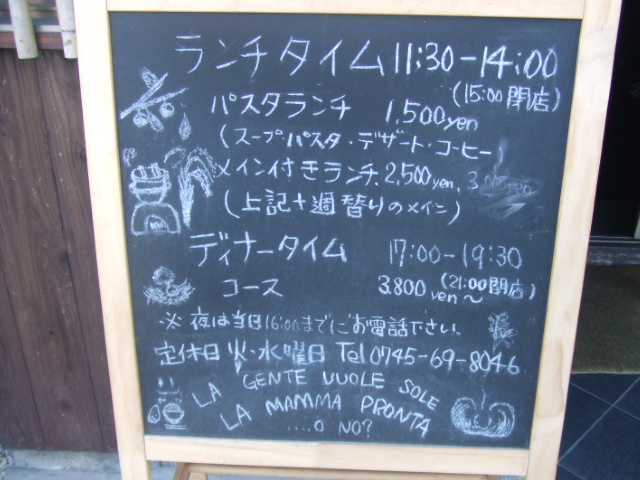 ランチタイム 11:30-14:00
(15:00 閉店)
パスタランチ 1,500yen
(スープ・パスタ・デザート・コーヒー
メイン付きランチ 2,500yen
(上記+週替りのメイン)
ディナータイム 17:00-19:30
(21:00閉店)
コース 3.800yen~
※ 夜は当日16:00までにお電話下さい。
定休日 火・水曜日 Tel 0745-69-8046
LA GENTE VUOLE SOLE
LA MAMMA PRONTA
....O NO?